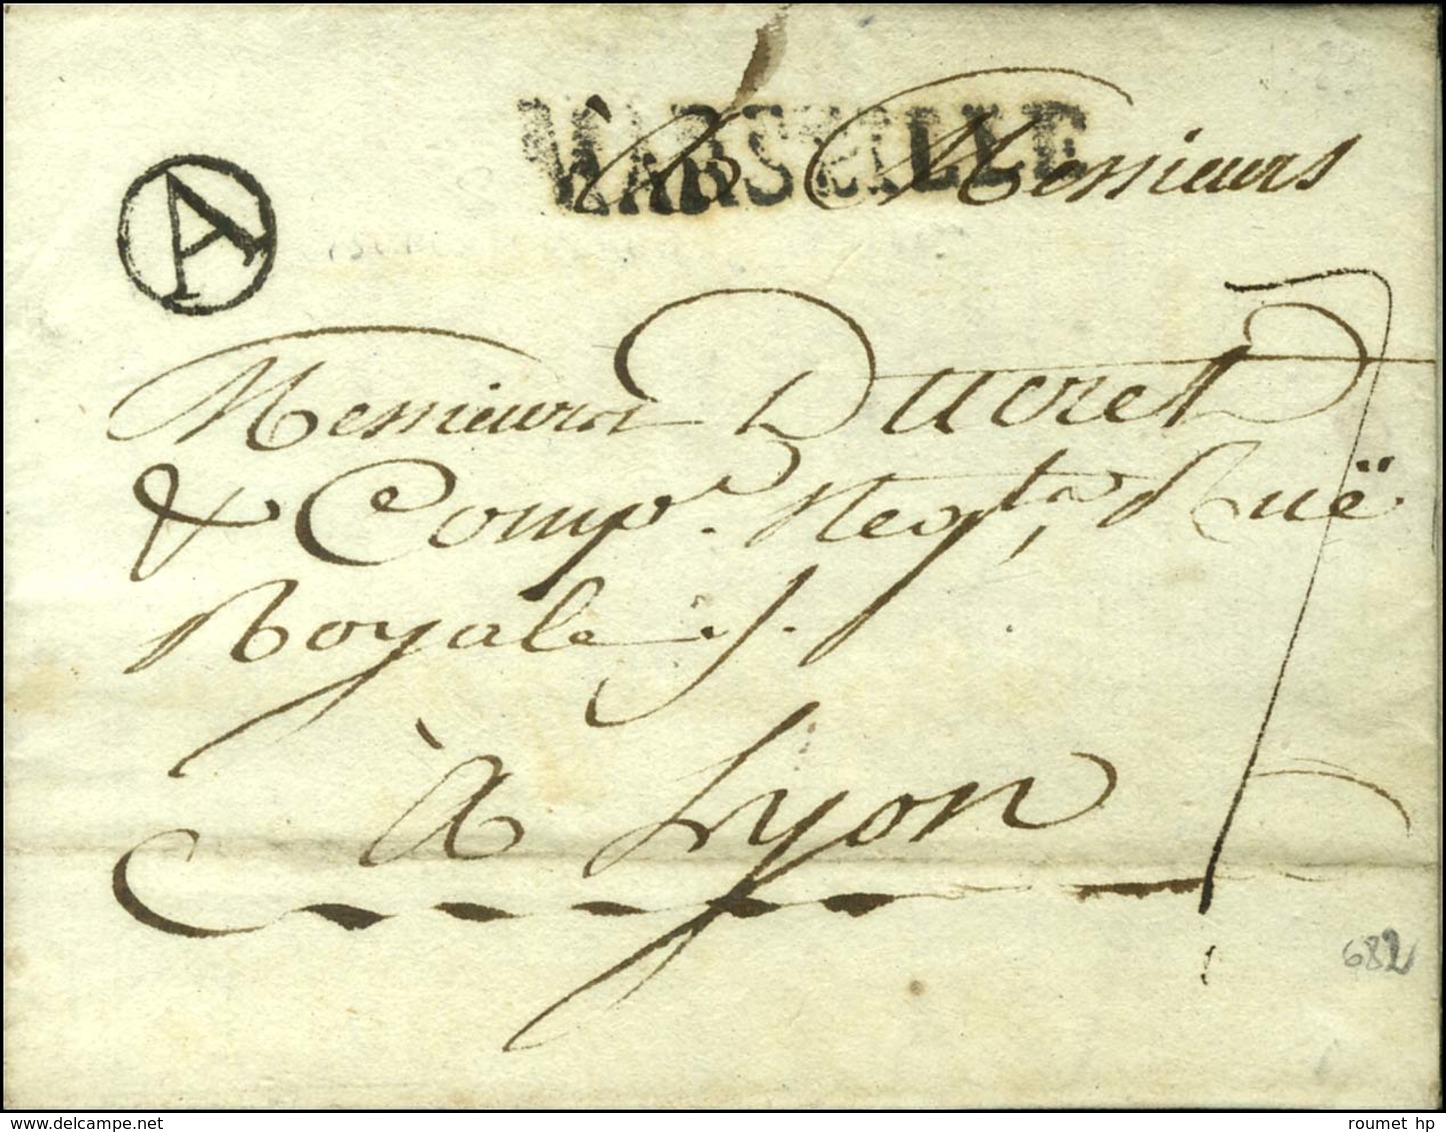 MARSEILLE
A Messieurs
A
Messieurs Ducret
& Comp.e Neg.ts, Ruë
Royale ./.
à Lyon
7
682
roumet hp